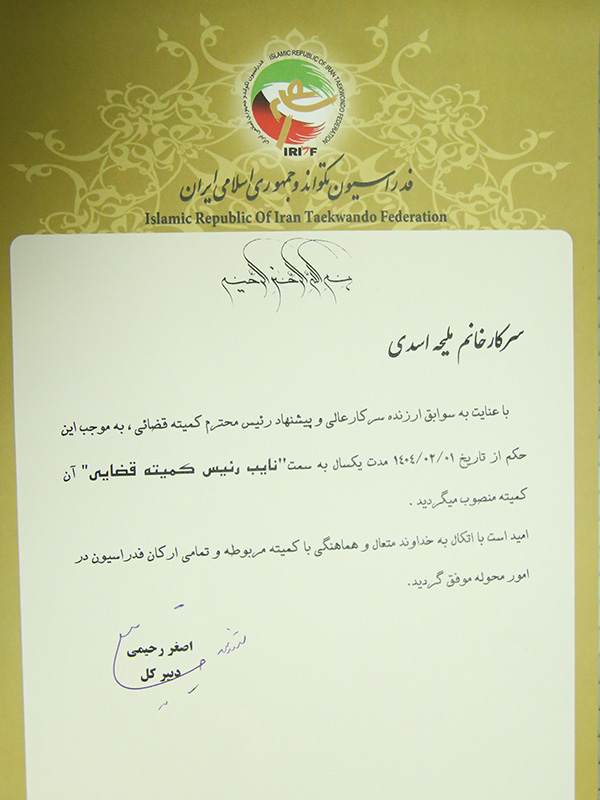 ISLAMIC REPUBLIC OF IRAN TAEKWONDO FEDERATION
IRITF
فدراسیون تکواندو جمهوری اسلامی ایران
Islamic Republic Of Iran Taekwando Federation
بسم الله الرحمن الرحیم
سرکار خانم ملیحه اسدی
با عنایت به سوابق ارزنده سرکارعالی و پیشنهاد رئیس محترم کمیته قضائی ، به موجب این
حکم از تاریخ ۱۴۰۴/۰۲/۰۱ مدت یکسال به سمت "نایب رئیس کمیته قضایی" آن
کمیته منصوب میگردید .
امید است با اتکال به خداوند متعال و هماهنگی با کمیته مربوطه و تمامی ارکان فدراسیون در
امور محوله موفق گردید.
اصغر رحیمی
دبیر کل